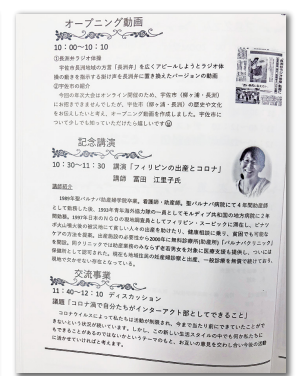 オープニング動画
10：00～10：10
①長洲弁ラジオ体操
宇佐市長洲地域の方言「長洲弁」を広くアピールしようとラジオ体
操の動きを指示する掛け声を長洲弁に置き換えたバージョンの動画
②宇佐市の紹介
今回の年次大会はオンライン開催のため、宇佐市（柳ヶ浦・長洲）
にお招きできませんでしたが、宇佐市（柳ヶ浦・長洲）の歴史や文化
をお伝えしたいと考え、オープニング動画を作成しました。宇佐市に
ついて少しでも知っていただけたら嬉しいです
記念講演
10：30～11：30 講演「フィリピンの出産とコロナ」
講師 冨田 江里子氏
講師紹介
1989年聖バルナバ助産婦学院卒業。看護師・助産師。聖バルナバ病院にて4年間助産師
として勤務した後、1993年青年海外協力隊の一員としてモルディブ共和国の地方病院に2年
間勤務。1997年日本のNGOの現地調整員としてフィリピン・スービックに滞在し、ピナツ
ボ火山噴火後の被災地にて貧しい人々の出産を助けたり、健康相談に乗り、貧困でも可能な
ケアの方法を提案。出産施設の必要性から2000年に無料診療所(助産所)「バルナバクリニック」
を開設。同クリニックでは助産業務のみならず老若男女を対象に医療支援も提供し、ついには
保健所として認可された。現在も地域住民の妊産婦診察と出産、一般診察を無償で続けており、
現地で欠かせない存在となっている。
交流事業
11：40～12：10 ディスカッション
議題「コロナ渦で自分たちがインターアクト部としてできること」
コロナウイルスによって私たちは活動が制限され、今まで当たり前にできていたことがで
きないという状況が続いています。しかし、この新しい生活スタイルの中でも何か私たちに
もできることがあるのではないかというテーマのもと、お互いの意見を交わし合い今後の活動
に活かせていければと考えます。